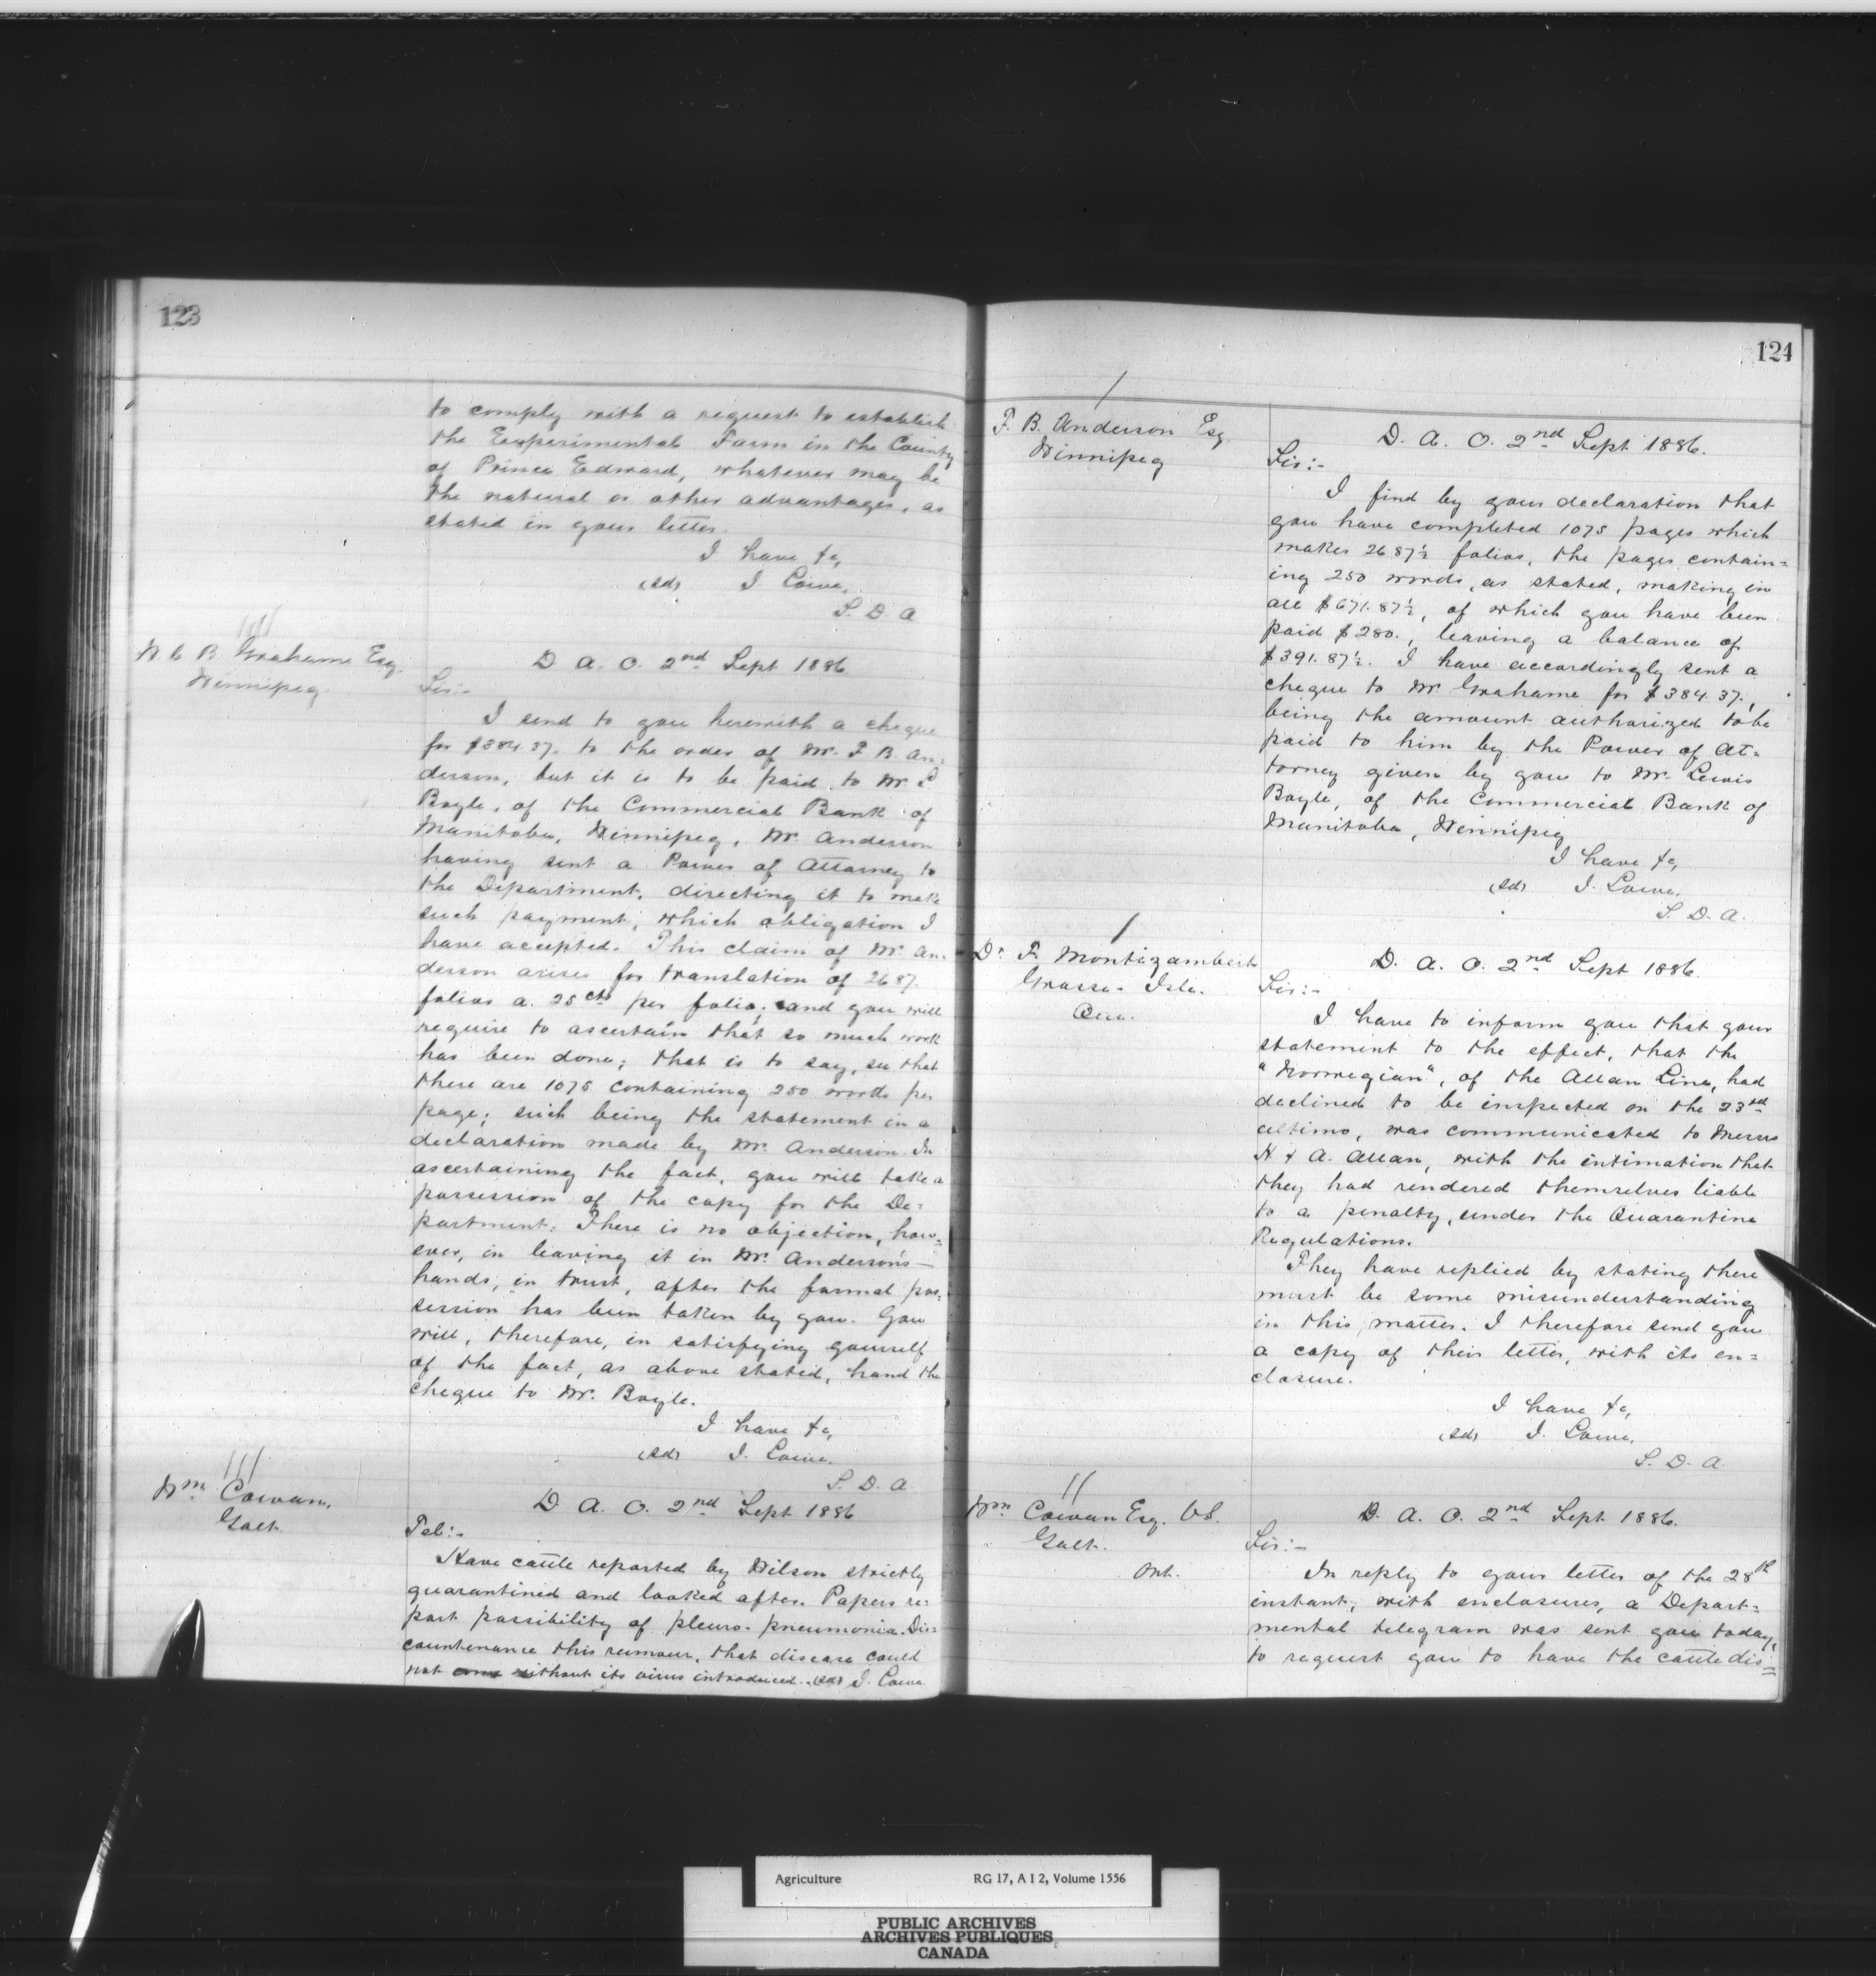 123
to comply with a request to establish
the Experimental Farm in the County
of Prince Edward, whatever may be
the natural or other advantages, as
stated in your letter.
I have &c,
(sd) J. Lowe,
S. D. A
W. C. B. Grahame Esq.
Winnipeg.
D. A. O. 2nd Sept 1886
Sir:-
I send to you herewith a cheque
for $384.37. to the order of Mr. F. B. An=
derson, but it is to be paid to Mr L
Boyle, of the Commercial Bank of
Manitoba, Winnipeg, Mr. Anderson
having sent a Power of Attorney to
the Department, directing it to make
such payment, which obligation I
have accepted. This claim of Mr An=
derson arises for translation of 2687
folios a. 25cts per folio; and you will
require to ascertain that so much work
has been done; that is to say, see that
there are 1075 containing 250 words per
page; such being the statement in a
declaration made by Mr. Anderson. In
ascertaining the fact, you will take a
possession of the copy for the De=
partment. There is no objection, how=
ever, in leaving it in Mr. Anderson's
hands, in trust, after the formal pos=
session has been taken by you. You
will, therefore, in satisfying yourself
of the fact, as above stated, hand the
cheque to Mr. Boyle.
I have &c,
(sd) J. Lowe.
S. D. A.
Wm Cowan,
Galt.
D. A. O. 2nd Sept 1886
Tel:-
Have cattle reported by Wilson strictly
quarantined and looked after. Papers re=
port possibility of pleuro-pneumonia. Dis=
countenance this rumour, that disease could
not without its virus introduced. (sd) J. Lowe
124
F. B. Anderson Esq
Winnipeg
D. A. O. 2nd Sept 1886.
Sir:-
I find by your declaration that
you have completed 1075 pages which
makes 2687½ folios, the pages contain=
ing 250 words, as stated, making in
all $671.87½, of which you have been
paid $280., leaving a balance of
$391.87½. I have accordingly sent a
cheque to Mr. Grahame for $384.37.,
being the amount authorized to be
paid to him by the Power of At=
torney given by you to Mr. Lewis
Boyle, of the Commercial Bank of
Manitoba, Winnipeg
I have &c,
(sd) J. Lowe.
S. D. A.
Dr F. Montizambert
Grosse Isle.
Que.
D. A. O. 2nd Sept 1886.
Sir:-
I have to inform you that your
statement to the effect, that the
"Norwegian", of the Allan Line, had
declined to be inspected on the 23rd
ultimo, was communicated to Messrs
H & A. Allan, with the intimation that
they had rendered themselves liable
to a penalty, under the Quarantine
Regulations.
They have replied by stating there
must be some misunderstanding
in this matter. I therefore send you
a copy of their letter, with its en=
closure.
I have &c,
(sd) J. Lowe.
S. D. A.
Wm Cowan Esq. V.S.
Galt.
Ont.
D. A. O. 2nd Sept 1886.
Sir:-
In reply to your letter of the 28th
instant, with enclosures, a Depart=
mental telegram was sent you today,
to request you to have the cattle dis=
Agriculture RG 17, A I 2, Volume 1556
PUBLIC ARCHIVES
ARCHIVES PUBLIQUES
CANADA